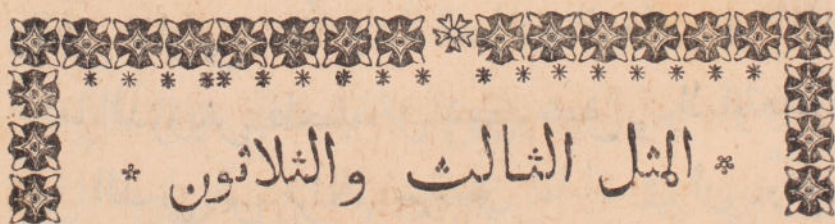 * المثل الثالث والثلاثون *